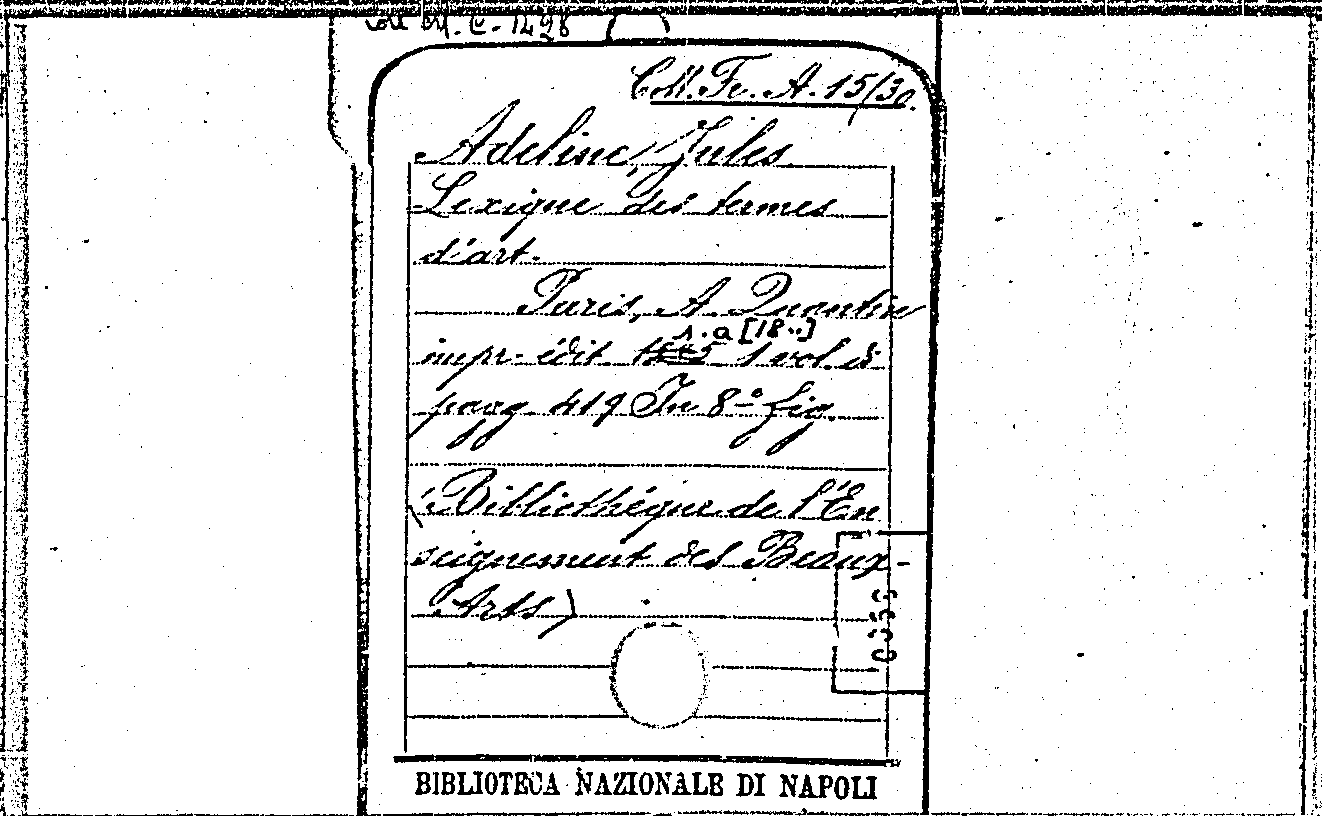 C. 1498
Coll. Fr. A. 15/30.
Adeline, Jules
Lexique des termes
d'art.
Paris, A. Quantin
s. a [18..]
impr. édit. 1 vol. di
pagg. 419 In 8-° fig.
(Bibliothéque de l'En
seignement des Beaux-
Arts)
BIBLIOTECA NAZIONALE DI NAPOLI